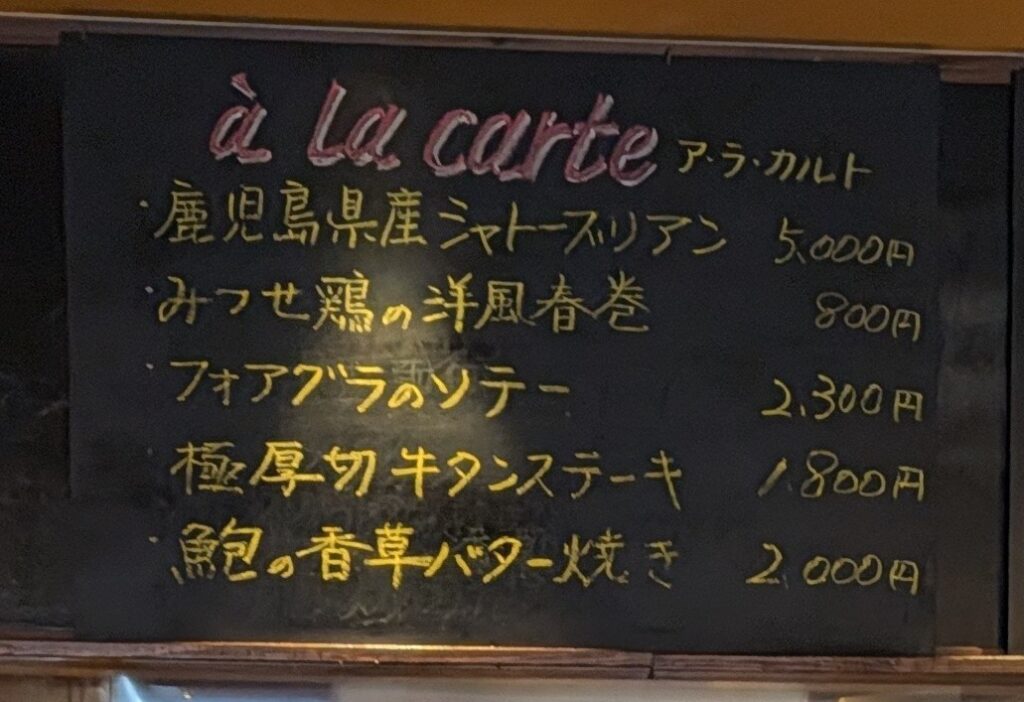 à la carte ア・ラ・カルト
・鹿児島県産シャトーブリアン 5,000円
・みつせ鶏の洋風春巻 800円
・フォアグラのソテー 2,300円
極厚切牛タンステーキ 1,800円
・鮑の香草バター焼き 2,000円